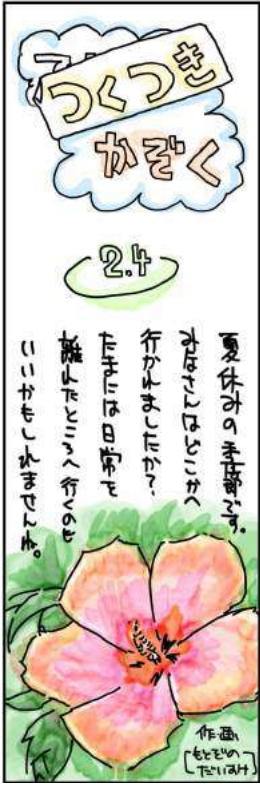 つくつき
かぞく
2.4
夏休みの季節です。
みなさんはどこかへ
行かれましたか？
たまには日常を
離れたところへ行くのも
いいかもしれませんね。
作・画
もとぞの
だいすけ